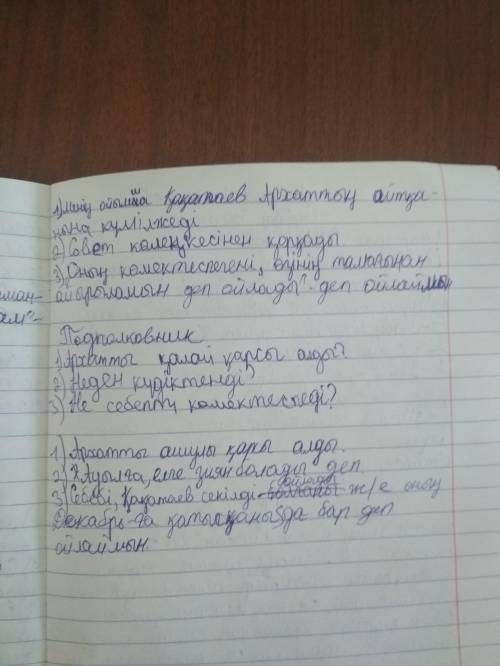 1) Менің ойымша Қақатаев Архаттың айтқа-
нына күмілжеді
2) Совет көлеңкесінен қорқады
3) Оның көмектеспегені, өзінің тамағынан
айырыламын деп ойлады? деп ойлаймын
Подполковник
1) Архатты қалай қарсы алды?
2) Неден күдіктенді?
3) Не себепті көмектеспеді?
1) Архатты ашулы қарсы алды.
2) Ауылға, елге зиян болады деп
ойлады
3) Себебі, Қақатаев секілді ж/е оның
Декабрь-ға қатысқаны да бар деп
ойлаймын.